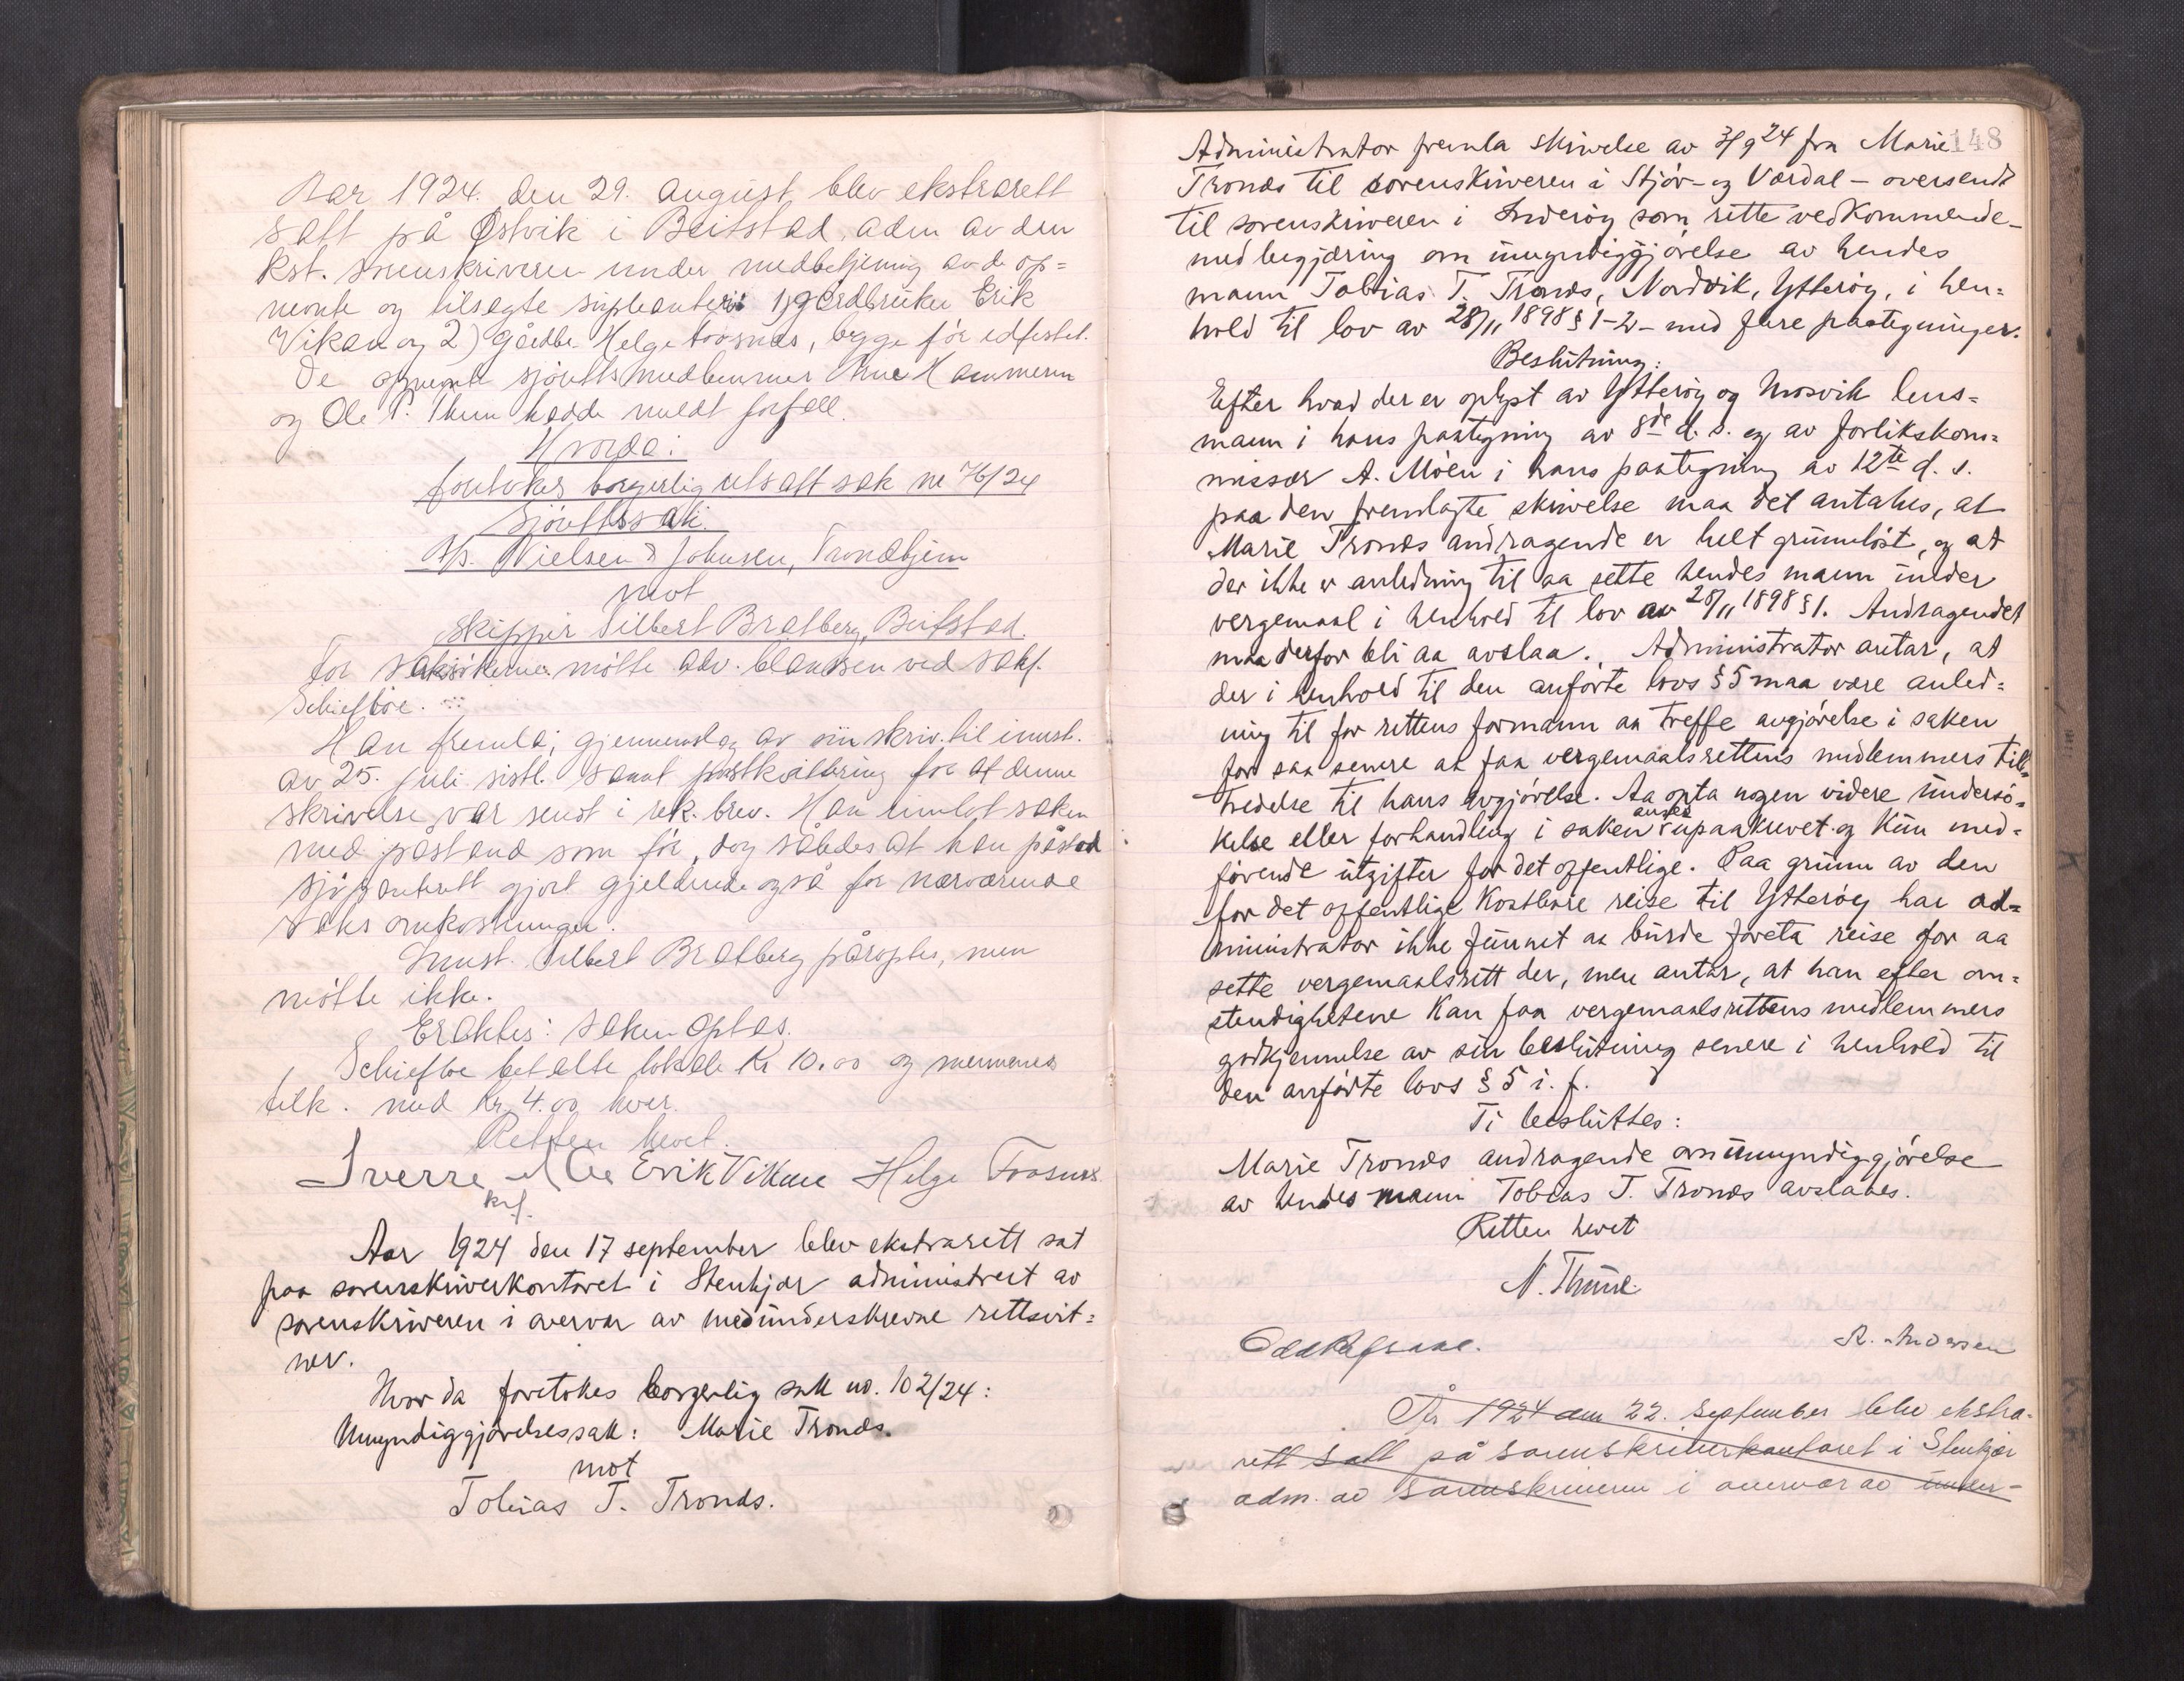 Aar 1924. den 29. august blev ekstrarett
satt på Østvik i Beitstad, adm av den
kst. sorenskriver under medbetjening av de op=
nevnte og tilsagte suppleanter: 1) gårdbruker Erik
Vikan og 2) gårdbr. Helge Aasnes, begge før edfestet.
De opnevnte sjørettsmedlemmer Arne Hammern
og Ole P. Thun hadde meldt forfall.
Hvorda:
foretokes borgerlig utsatt sak nr 76/24
Sjørettssak.
A/s. Nielsen & Johnsen, Trondhjem
mot
skipper Hilbert Bratberg, Beitstad.
For saksøkerne møtte adv. Clausen ved sakf.
Schiefloe.
Han fremla; gjennemslag av sin skriv. til innst.
av 25. juli sistl. samt postkvittering for at denne
skrivelse var sendt i rek. brev. Han innlot saken
med påstand som før, dog således at han påstod
sjøpanterett gjort gjeldende også for nærværende
saks omkostninger.
Innst. Hilbert Bratberg påroptes, men
møtte ikke.
Eraktes: Saken optas.
Schiefloe betalte lokale kr 10.00 og mennenes
tilk. med kr. 4.00 hver.
Retten hevet.
Sverre Moe Erik Vikan Helge Aasnes
kst.
Aar 1924 den 17 september blev ekstrarett sat
paa sorenskriverkontoret i Stenkjær administrert av
sorenskriveren i overvær av medunderskrevne rettsvit=
ner.
Hvor da foretokes borgerlig sak no. 102/24:
Umyndiggjørelsessak: Marie Tronds.
mot
Tobias T. Tronds.
148
Administrator fremla skrivelse av 3/9 24 fra Marie
Tronds til sorenskriveren i Stjør- og Værdal - oversendt
til sorenskriveren i Inderøy som rette vedkommende -
med begjæring om umyndiggjørelse av hendes
mann Tobias T. Tronds, Nordvik, Ytterøy, i hen=
hold til lov av 28/11 1898 § 1-2 - med flere paategninger.
Beslutning:
Efter hvad der er oplyst av Ytterøy og Mosvik lens=
mann i hans paategning av 8de d. s. og av forlikskom=
missær A. Moen i hans paategning av 12te d. s.
paa den fremlagte skrivelse maa det antakes, at
Marie Tronds andragende er helt grunnløst, og at
der ikke er anledning til aa sette hendes mann under
vergemaal i henhold til lov av 28/11 1898 § 1. Andragendet
maa derfor bli aa avslaa. Administrator antar, at
der i henhold til den anførte lovs § 5 maa være anled=
ning til for rettens formann aa treffe avgjørelse i saken
for saa senere at faa vergemaalsrettens medlemmers til=
tredelse til hans avgjørelse. Aa opta nogen videre undersø=
kelse eller forhandling i saken ansees upaakrevet og kun med=
førende utgifter for det offentlige. Paa grunn av den
for det offentlige kostbare reise til Ytterøy har ad=
ministrator ikke funnet aa burde foreta reise for aa
sette vergemaalsrett der, men antar, at han efter om=
stendighetene kan faa vergemaalsrettens medlemmers
godkjennelse av sin beslutning senere i henhold til
den anførte lovs § 5 i. f.
Ti besluttes:
Marie Tronds andragende om umyndiggjørelse
av hendes mann Tobias T. Tronds avslaaes.
Retten hevet
N. Thune.
A. Andersen
År 1924 den 22. september blev ekstra-
rett satt på sorenskriverkontoret i Stenkjær
adm. av sorenskriveren i overvær av under-